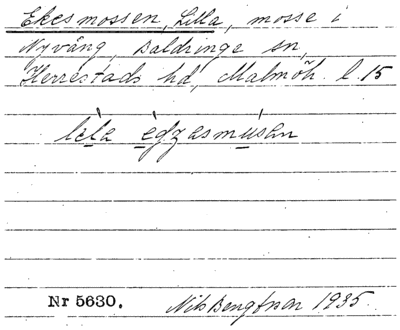 Ekesmossen, Lilla, mosse i
Nyvång, Baldringe sn,
Herrestads hd, Malmöh. l. 15
lela egzasmusen
Nr 5630. Nils Bengtson 1935.